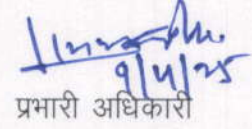 9/4/25
प्रभारी अधिकारी